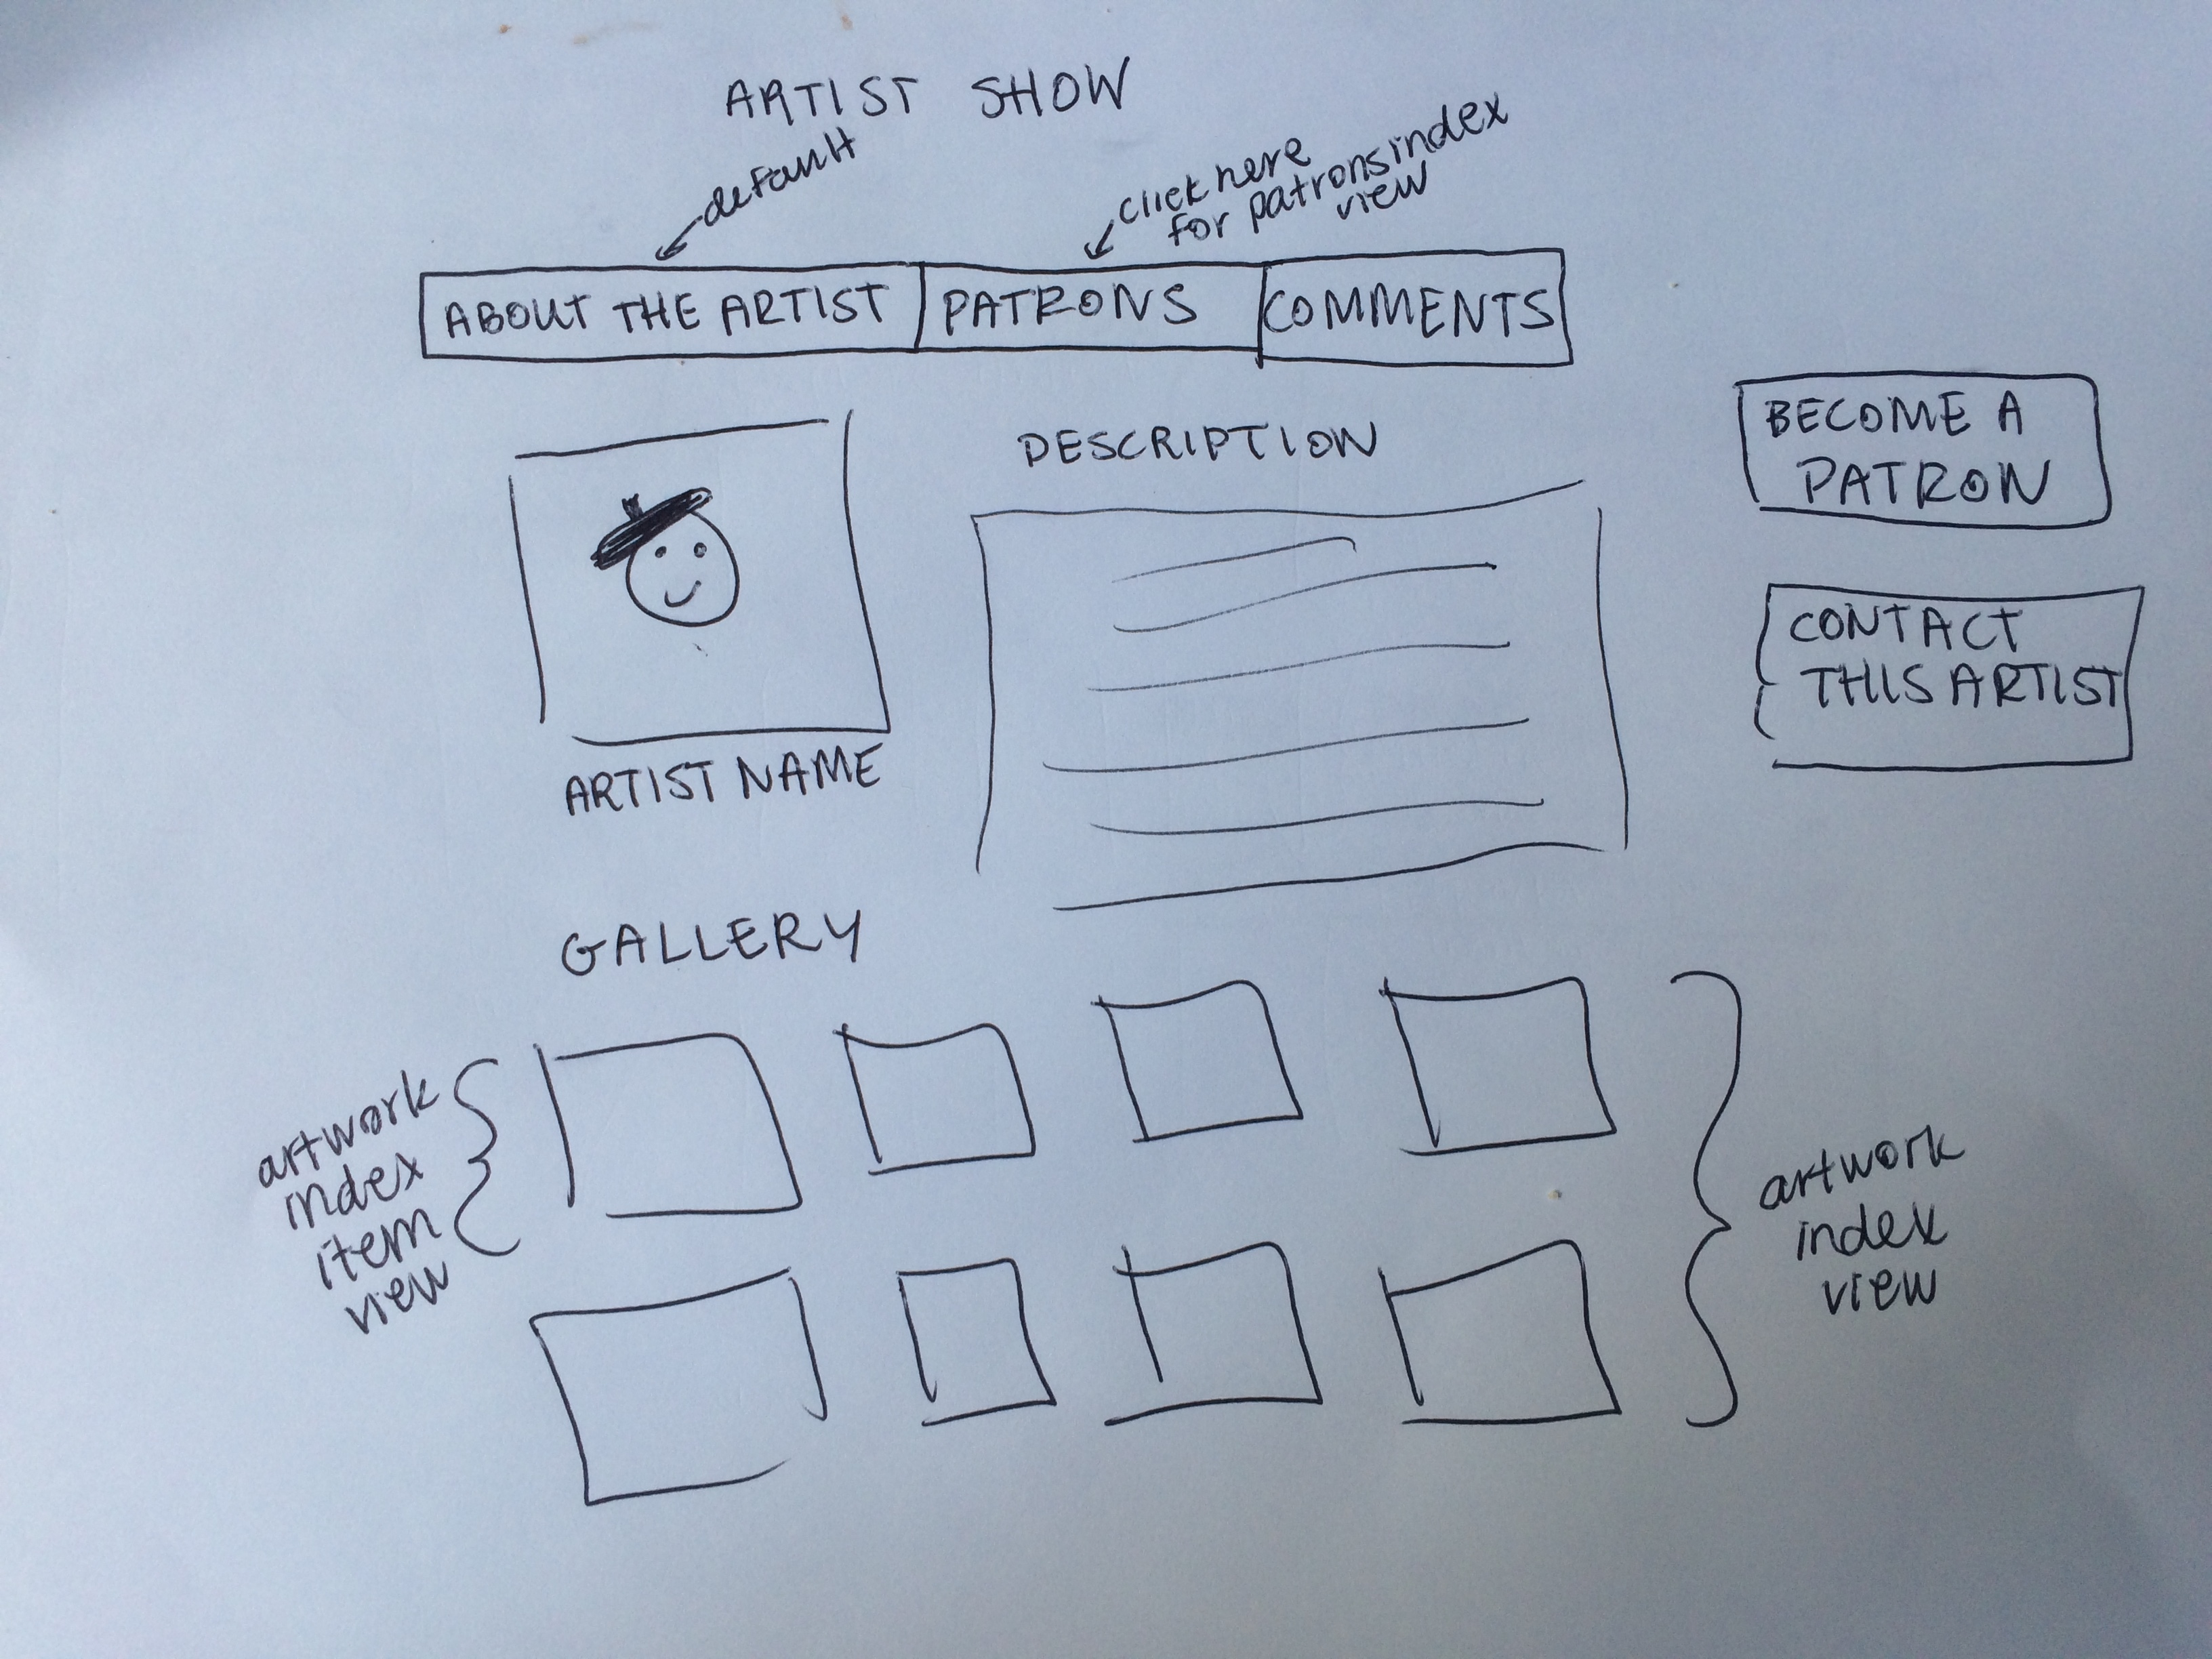 ARTIST SHOW
default
click here
for patrons index
view
ABOUT THE ARTIST
PATRONS
COMMENTS
DESCRIPTION
BECOME A
PATRON
CONTACT
THIS ARTIST
ARTIST NAME
GALLERY
artwork
index
item
view
artwork
index
view